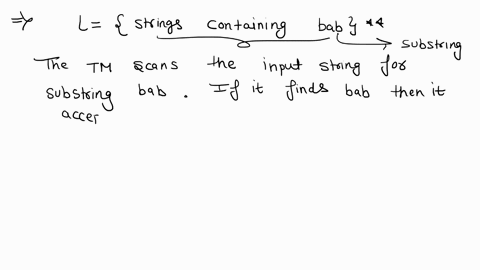 => L = { strings containing bab } **
substring
The TM scans the input string for
substring bab . If it finds bab then it
accep